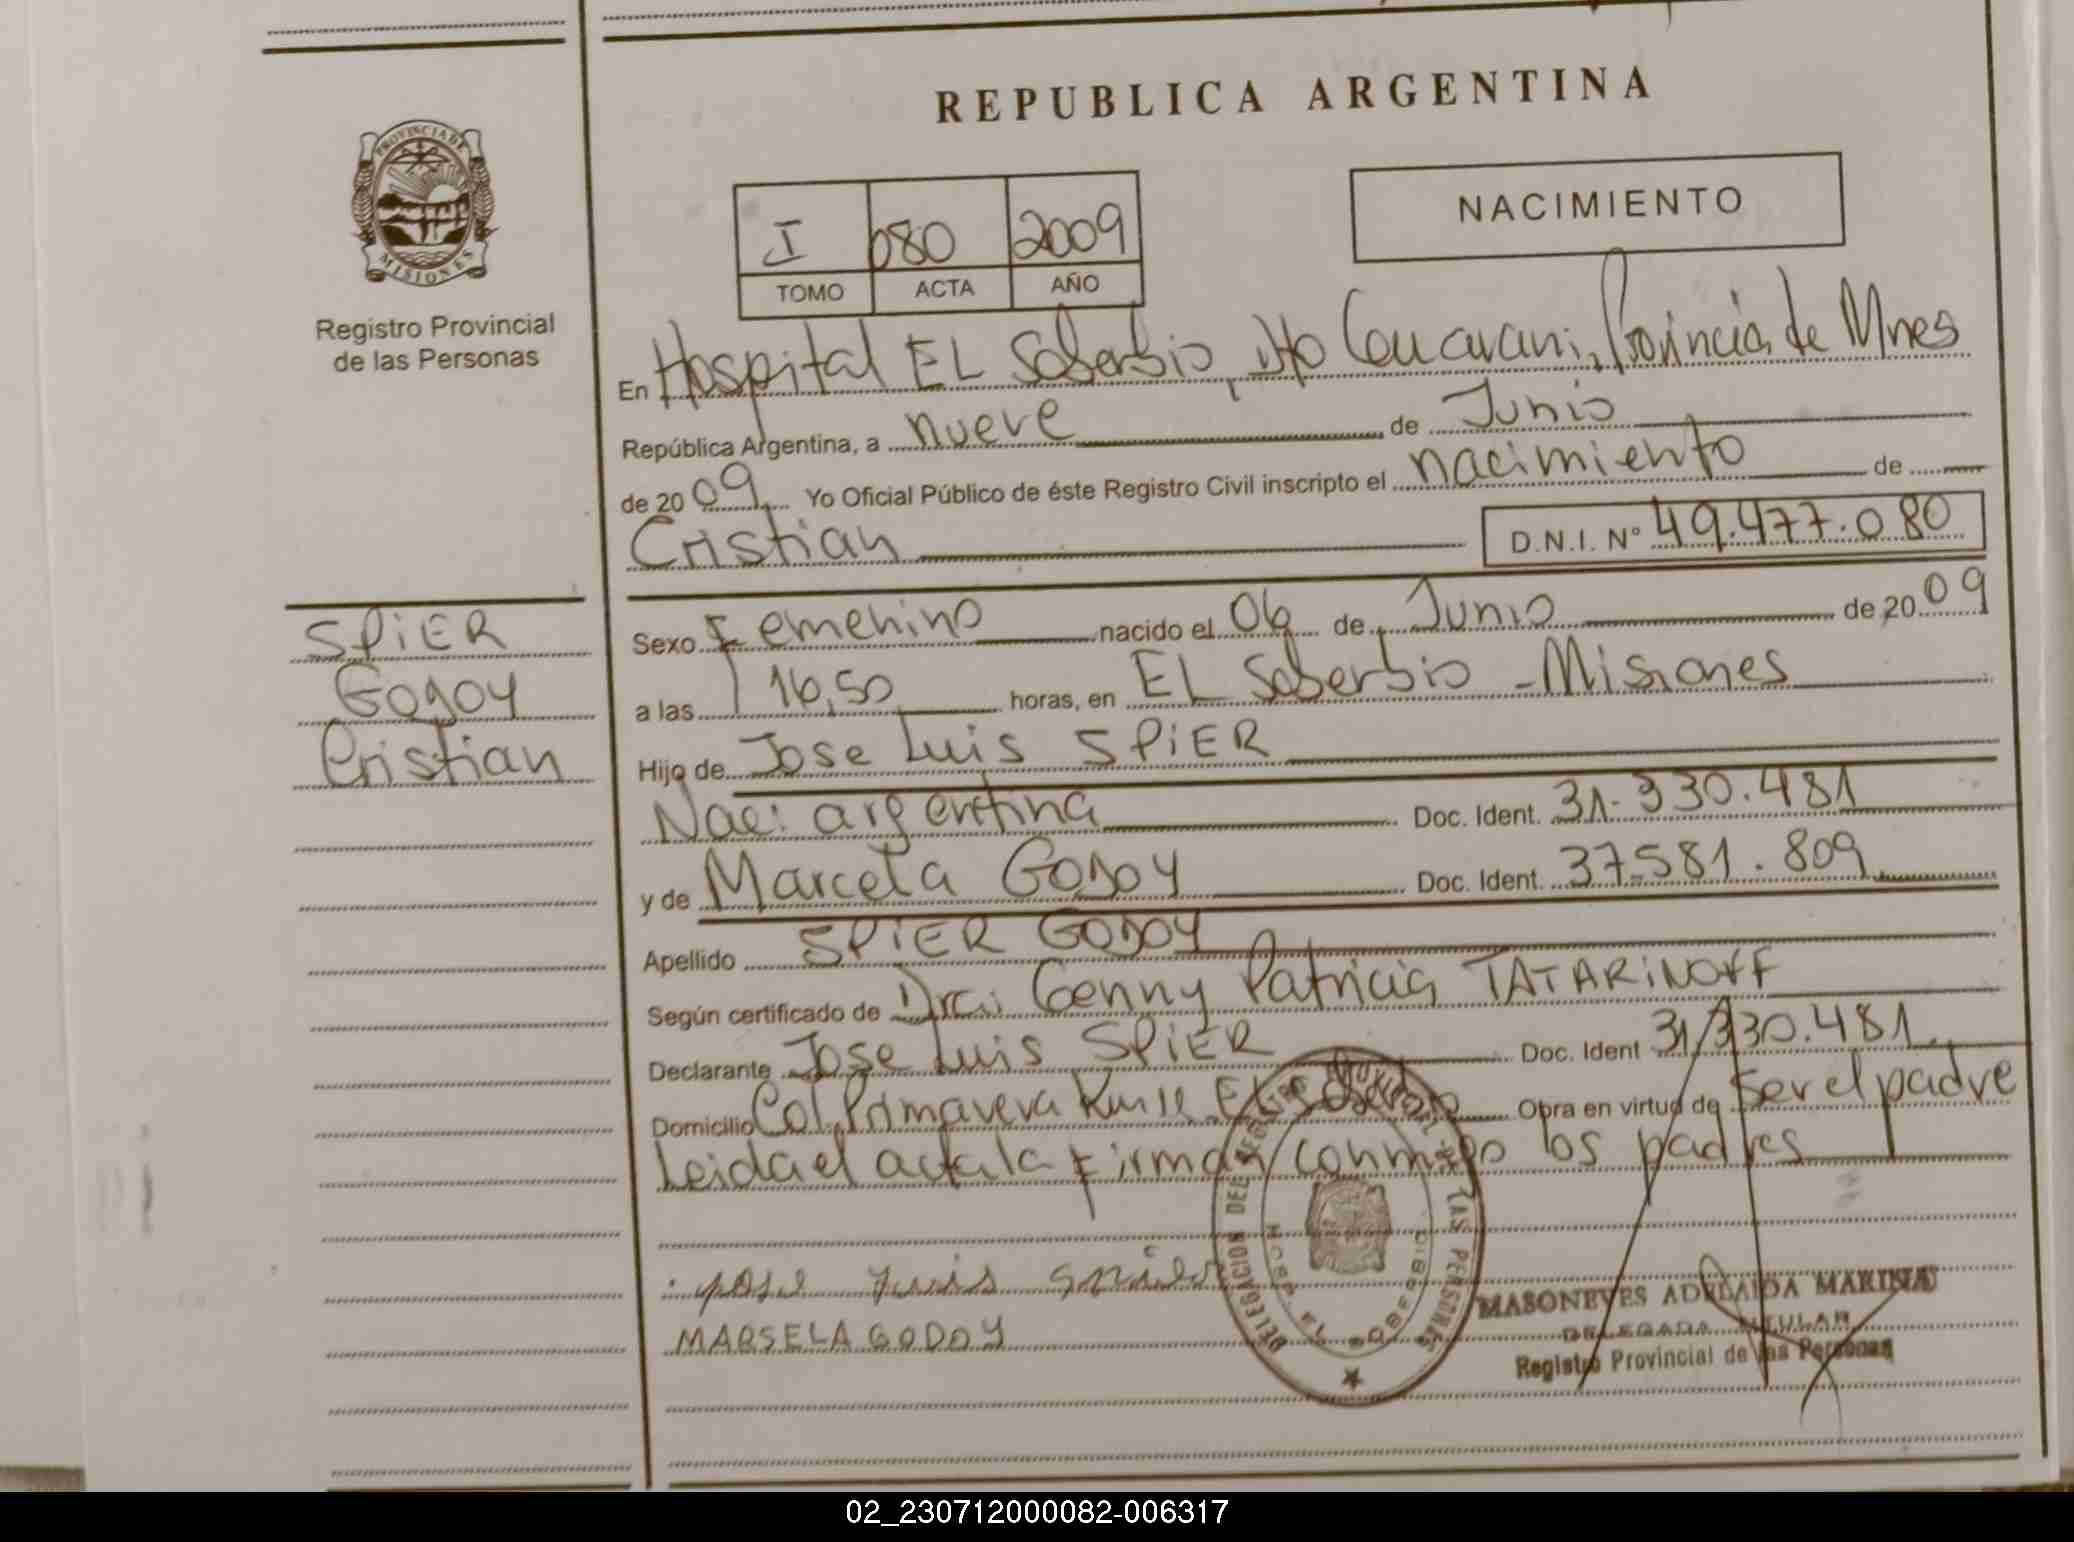 REPUBLICA ARGENTINA
PROVINCIA DE
MISIONES
Registro Provincial
de las Personas
I 080 2009
TOMO ACTA AÑO
NACIMIENTO
En Hospital EL Soberbio, Dto Guarani, Provincia de Mnes
República Argentina, a nueve de Junio
de 20 09 Yo Oficial Público de éste Registro Civil inscripto el nacimiento de
Cristian D.N.I. N° 49.477.080
SPiER
GODOY
Cristian
Sexo Femenino nacido el 06 de Junio de 20 09
a las 16,50 horas, en EL Soberbio - Misiones
Hijo de Jose Luis SPiER
Nac: argentina Doc. Ident. 31.330.481
y de Marcela GODOY Doc. Ident. 37.581.809
Apellido SPiER GODOY
Según certificado de Dra: Genny Patricia TATARiNOFF
Declarante Jose Luis SPiER Doc. Ident 31.330.481
Domicilio Col. Primavera Km 11 EL Soberbio Obra en virtud de ser el padre
Leida el acta la firman conmigo los padres
jose luis spier
MARSELA GODOY
DELEGACION DEL REGISTRO LAS PERSONAS
MASONEVES ADELAIDA MARINA
DELEGADA TITULAR
Registro Provincial de las Personas
02_230712000082-006317